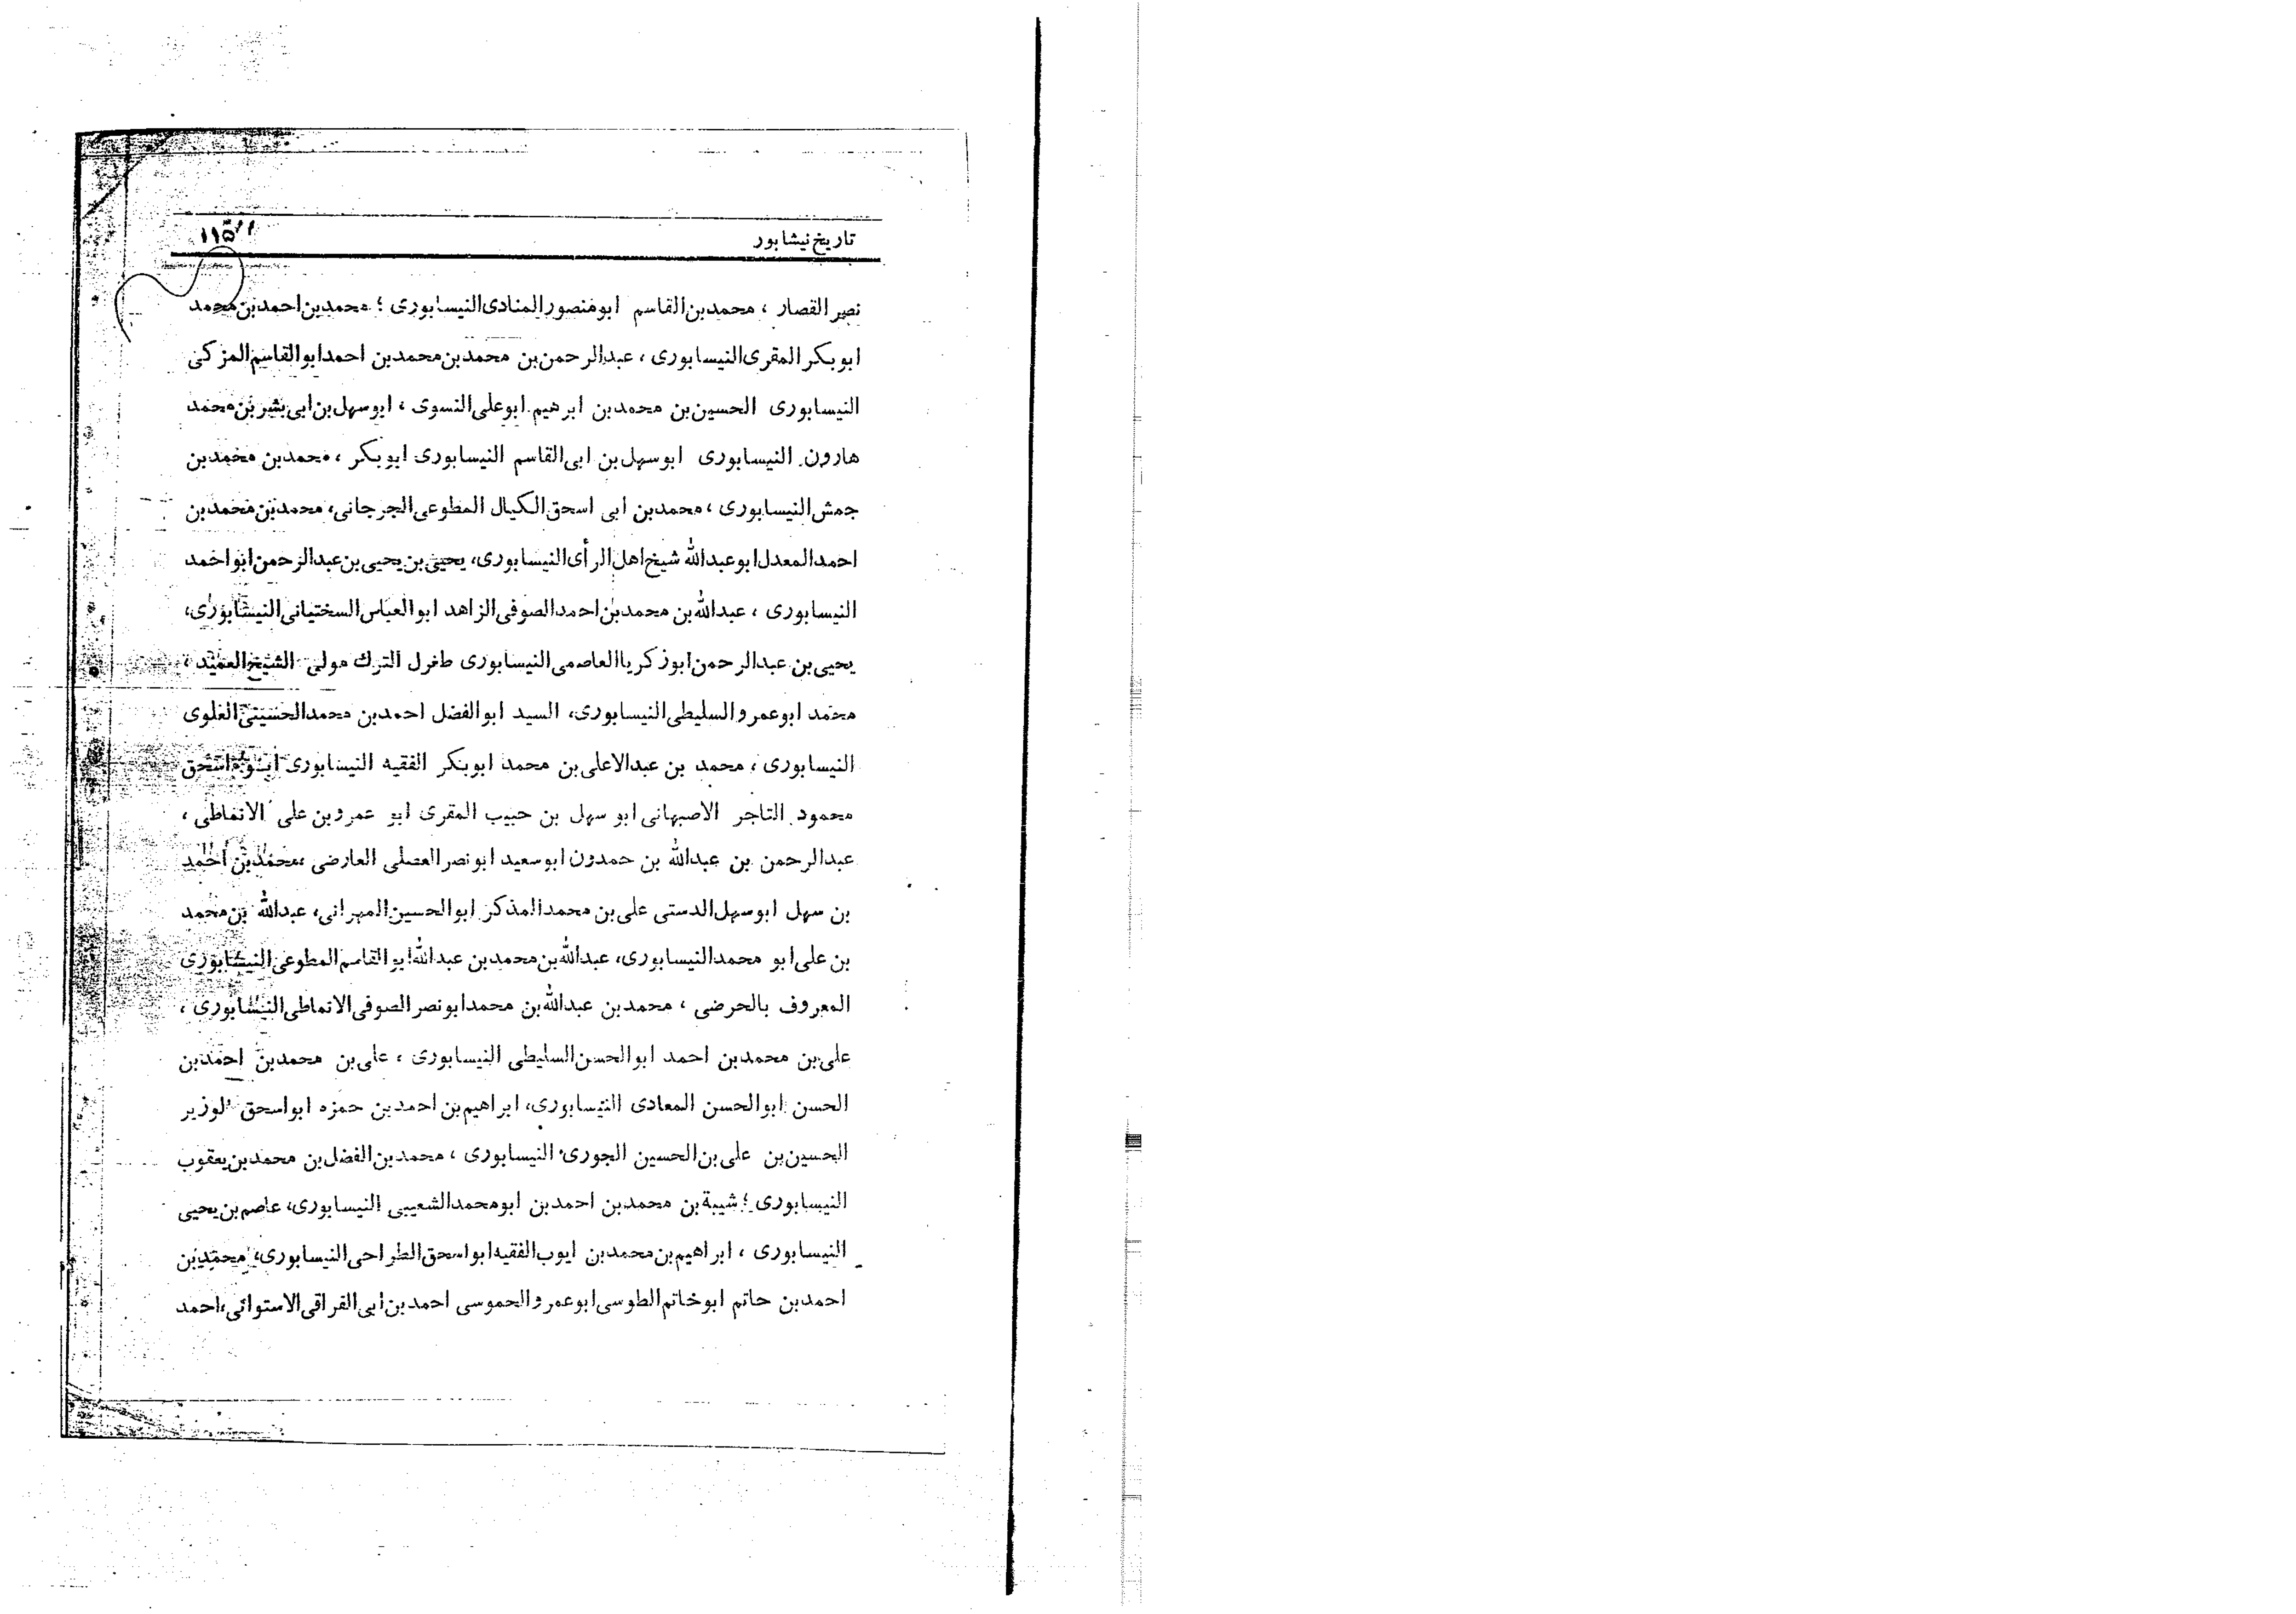 تاریخ نیشابور
۱۱۵
نصر القصار ، محمدبن القاسم ابومنصور المنادی النیسابوری ؛ محمدبن احمدبن محمد
ابوبکر المقری النیسابوری ، عبدالرحمن بن محمدبن محمدبن احمد ابوالقاسم المزکی
النیسابوری الحسین بن محمدبن ابرهیم ابوعلی النسوی ، ابوسهل بن ابی بشر بن محمد
هارون النیسابوری ابوسهل بن ابی القاسم النیسابوری ابوبکر ، محمدبن محمدبن
جمش النیسابوری ، محمدبن ابی اسحق الکیال المطوعی الجرجانی، محمدبن محمدبن
احمد المعدل ابوعبدالله شیخ اهل الرأی النیسابوری، یحیی بن یحیی بن عبدالرحمن ابو احمد
النیسابوری ، عبدالله بن محمدبن احمد الصوفی الزاهد ابوالعباس السختیانی النیشابوری،
یحیی بن عبدالرحمن ابوزکریا العاصمی النیسابوری طغرل الترک مولی الشیخ العمید ،
محمد ابوعمرو السلیطی النیسابوری، السید ابوالفضل احمدبن محمد الحسینی العلوی
النیسابوری ، محمد بن عبدالاعلی بن محمد ابوبکر الفقیه النیسابوری ابو اسحق
محمود التاجر الاصبهانی ابو سهل بن حبیب المقری ابو عمروبن علی الانماطی ،
عبدالرحمن بن عبدالله بن حمدون ابوسعید ابونصر العصلی العارضی ،محمدبن احمد
بن سهل ابوسهل الدستی علی بن محمد المذکر ابوالحسین المهرانی، عبدالله بن محمد
بن علی ابو محمد النیسابوری، عبدالله بن محمدبن عبدالله ابوالقاسم المطوعی النیشابوری
المعروف بالحرضی ، محمدبن عبدالله بن محمد ابونصر الصوفی الانماطی النیشابوری ،
علی بن محمدبن احمد ابوالحسن السلیطی النیسابوری ، علی بن محمدبن احمدبن
الحسن ابوالحسن المعادی النیسابوری، ابراهیم بن احمدبن حمزه ابواسحق الوزیر
الحسین بن علی بن الحسین الجوری النیسابوری ، محمدبن الفضل بن محمدبن یعقوب
النیسابوری ؛ شیبة بن محمدبن احمدبن ابومحمد الشعیبی النیسابوری، عاصم بن یحیی
النیسابوری ، ابراهیم بن محمدبن ایوب الفقیه ابواسحق الطراحی النیسابوری، محمدبن
احمدبن حاتم ابوخاتم الطوسی ابوعمرو الحموسی احمدبن ابی الفراقی الاستوائی، احمد